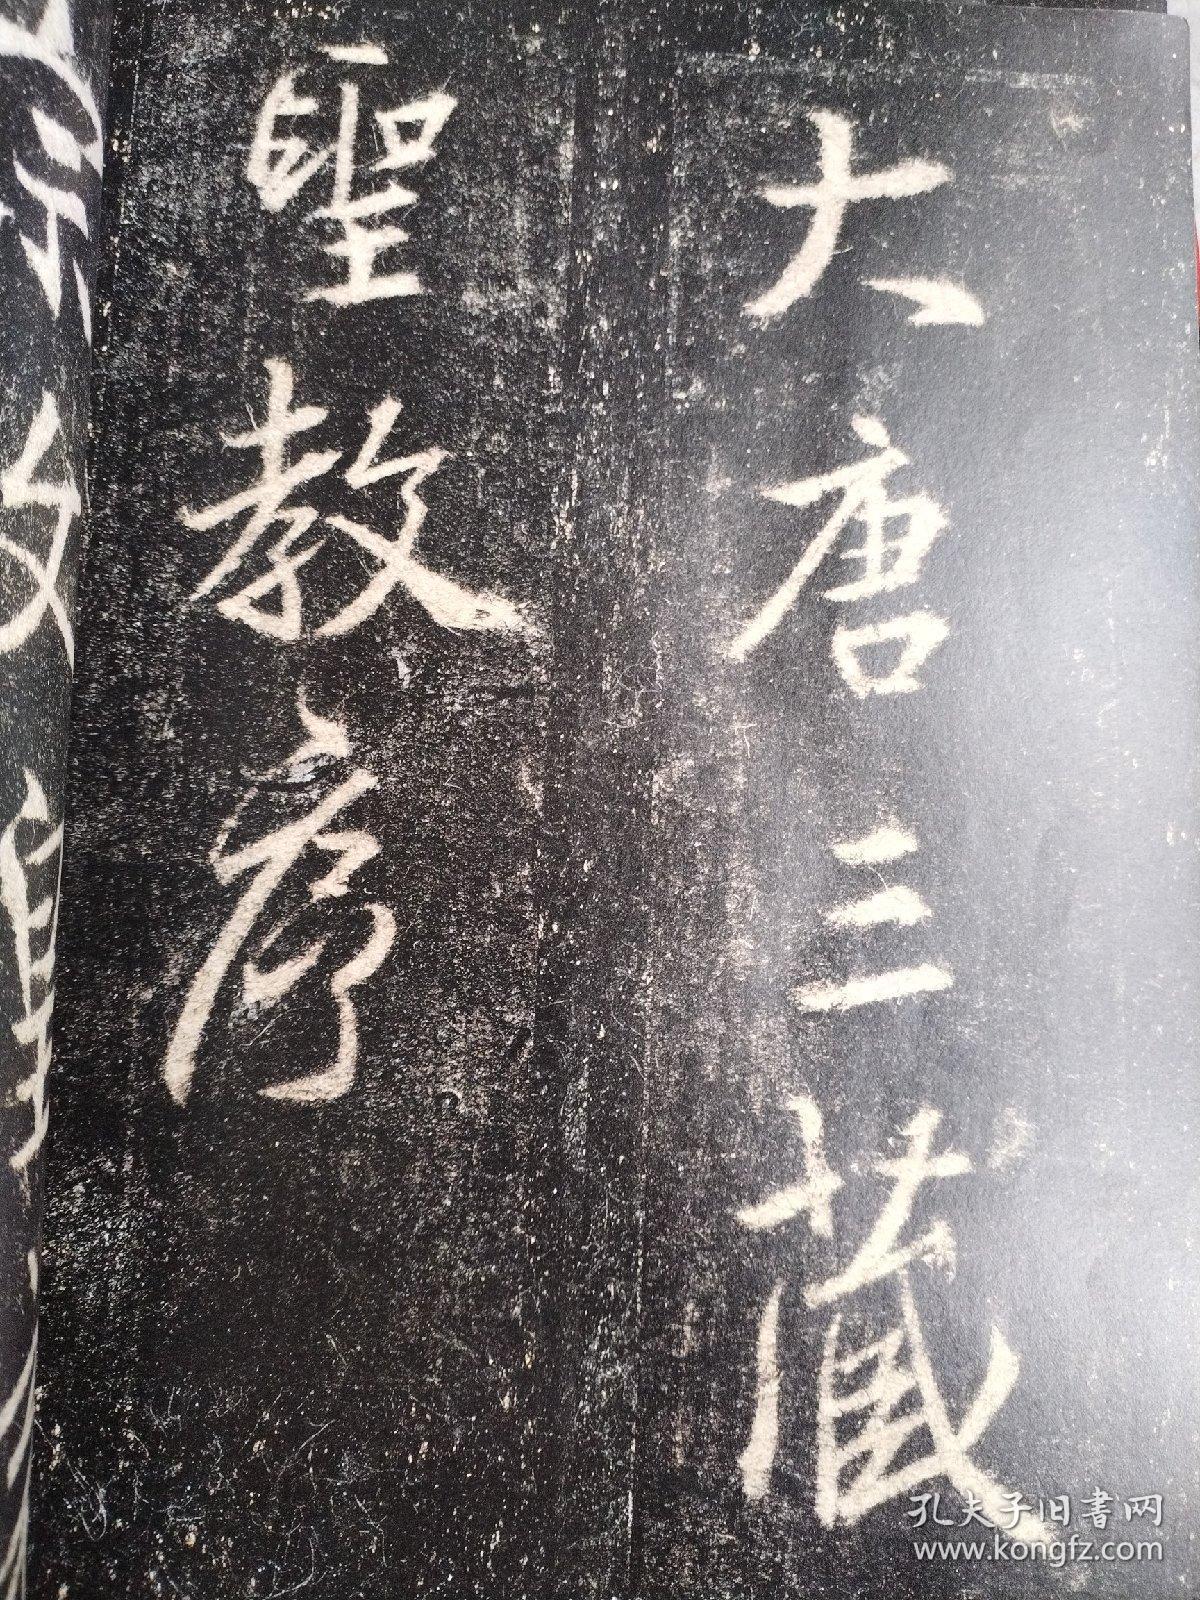 大唐三藏
聖教序
孔夫子旧書网
www.kongfz.com